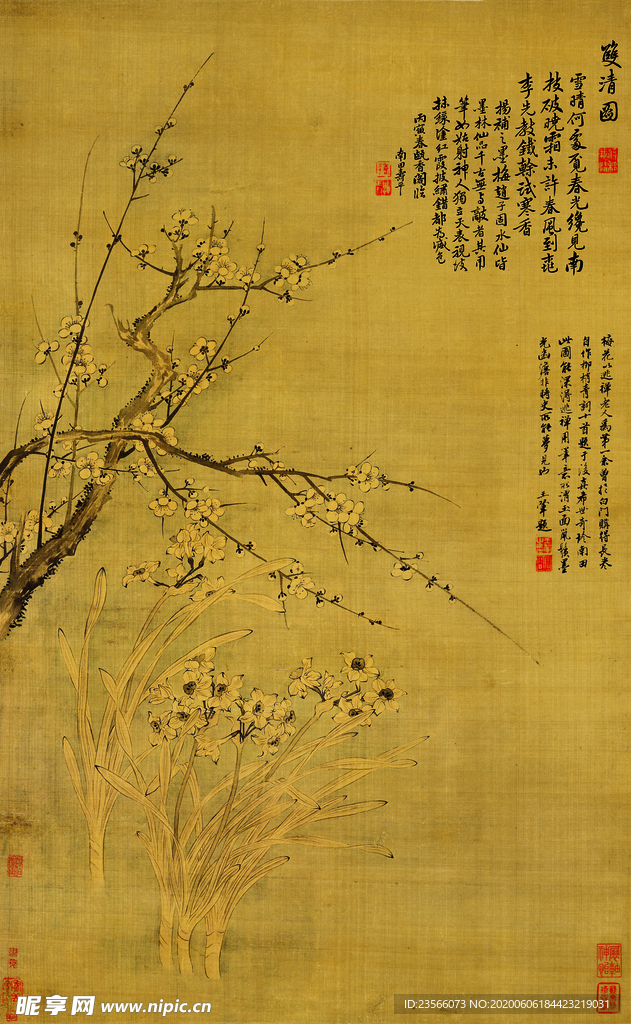 雙清圖
雪晴何處覓春光纔見南
枝破曉霜未許春風到桃
李先教鐵幹試寒香
楊補之墨梅趙子固水仙皆
墨林仙品千古無与敵者其用
筆如姑射神人獨立天表視後
抹綠塗紅霞披繡錯都為減色
丙寅春甌香閣臨
南田壽平
梅花以逃禪老人為第一余曾於白門購得長卷
自作柳梢青詞十首題于後真希世奇珍南田
此圖能深得逃禪用筆
光 非時史所能夢見也
王翬題
昵享网 www.nipic.cn
ID:23566073 NO:20200606184423219031